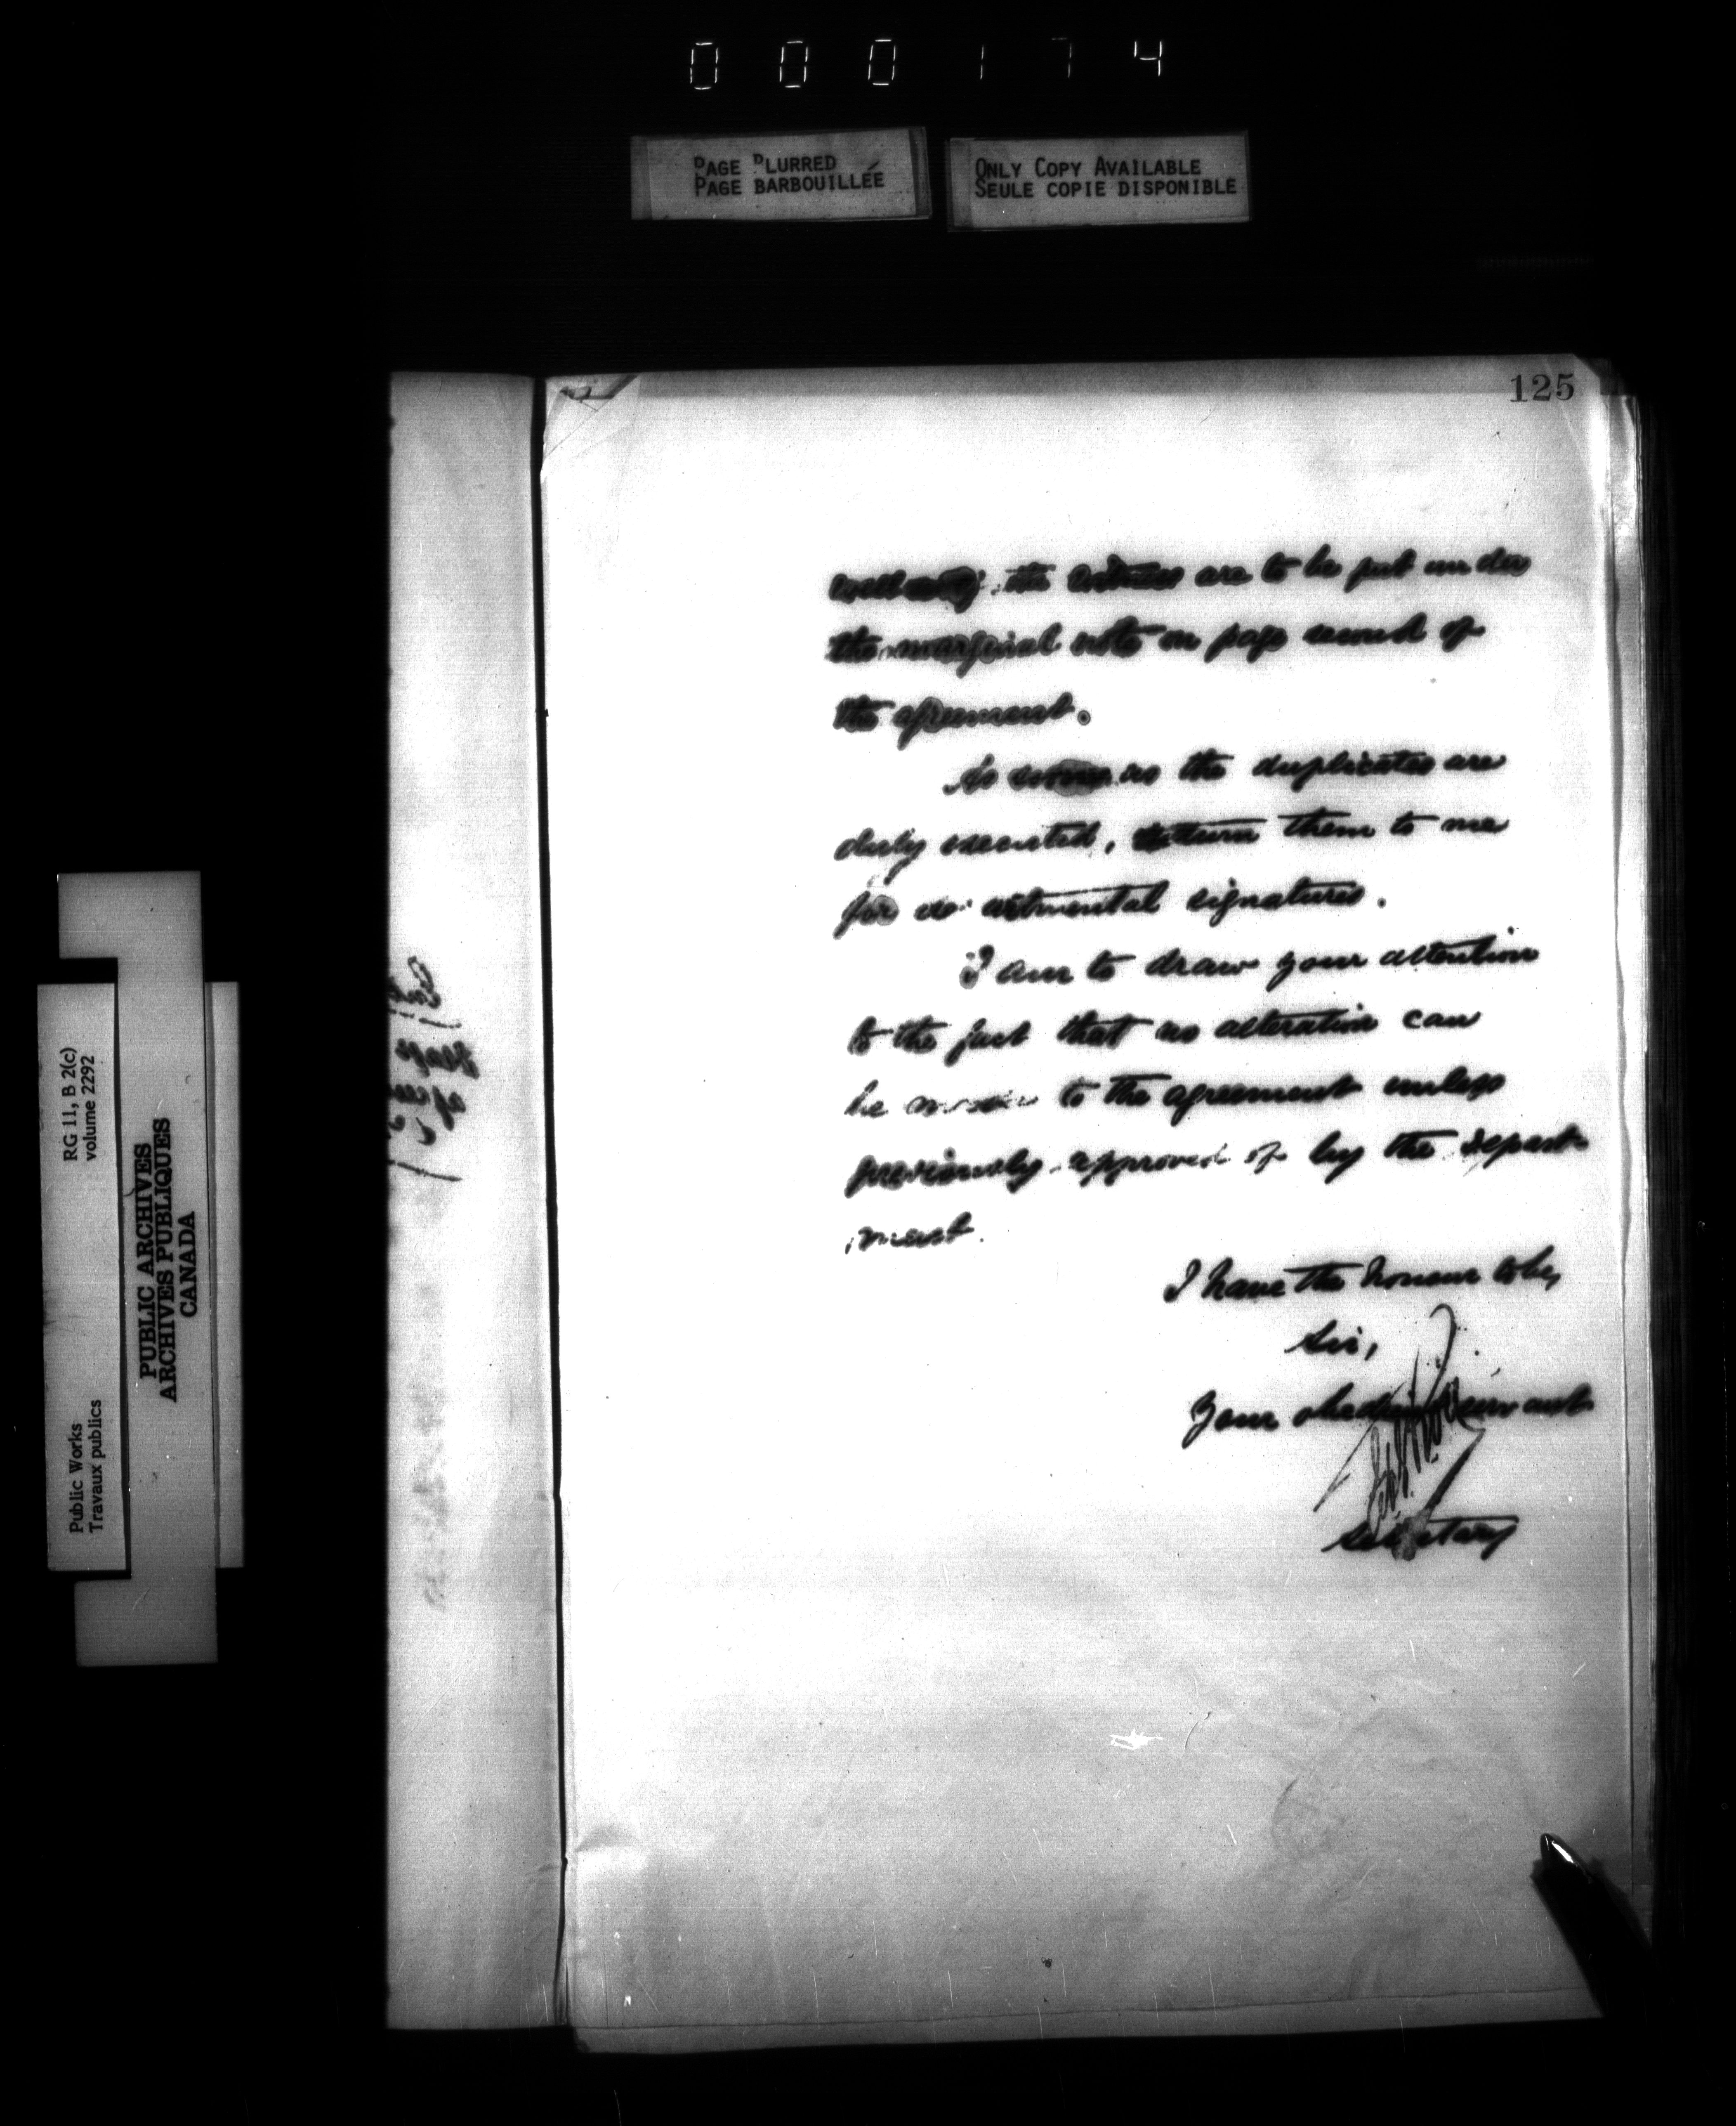 000174
PAGE BLURRED
PAGE BARBOUILLÉE
ONLY COPY AVAILABLE
SEULE COPIE DISPONIBLE
125
the witness are to be put under
the marginal note on page second of
the agreement.
As soon as the duplicates are
duly executed, return them to me
for departmental signatures.
I am to draw your attention
to the fact that no alteration can
be made to the agreement unless
previously approved of by the depart-
ment.
I have the honour to be,
Sir,
Your obedient servant
Secretary
RG 11, B 2(c)
volume 2292
Public Works
Travaux publics
PUBLIC ARCHIVES
ARCHIVES PUBLIQUES
CANADA